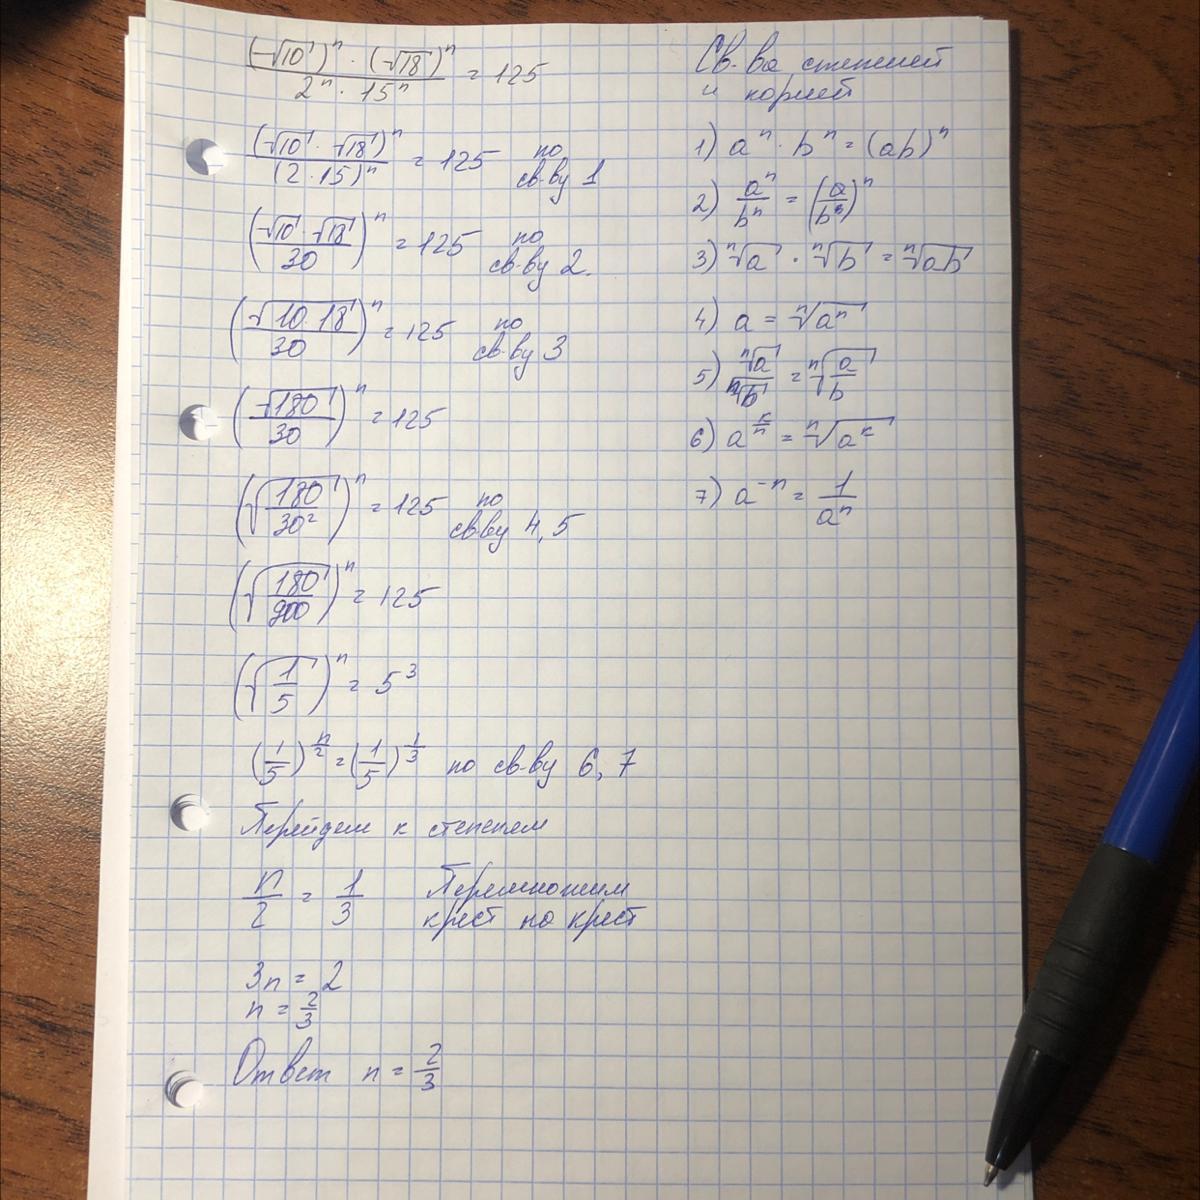 (√10)ⁿ · (√18)ⁿ / 2ⁿ · 15ⁿ = 125
(√10 · √18)ⁿ / (2 · 15)ⁿ = 125 по св-ву 1
(√10 · √18 / 30)ⁿ = 125 по св-ву 2.
(√10·18 / 30)ⁿ = 125 по св-ву 3
(√180 / 30)ⁿ = 125
(√180/30²)ⁿ = 125 по св-ву 4, 5
(√180/900)ⁿ = 125
(√1/5)ⁿ = 5³
(1/5)^(n/2) = (1/5)^(1/3) по св-ву 6, 7
Перейдем к степеням
n/2 = 1/3 Перемножим крест на крест
3n = 2
n = 2/3
Ответ n = 2/3
Св-ва степеней
и корней
1) aⁿ · bⁿ = (ab)ⁿ
2) aⁿ/bⁿ = (a/b)ⁿ
3) ⁿ√a · ⁿ√b = ⁿ√ab
4) a = ⁿ√aⁿ
5) ⁿ√a / ⁿ√b = ⁿ√a/b
6) a^(k/n) = ⁿ√a^k
7) a⁻ⁿ = 1/aⁿ